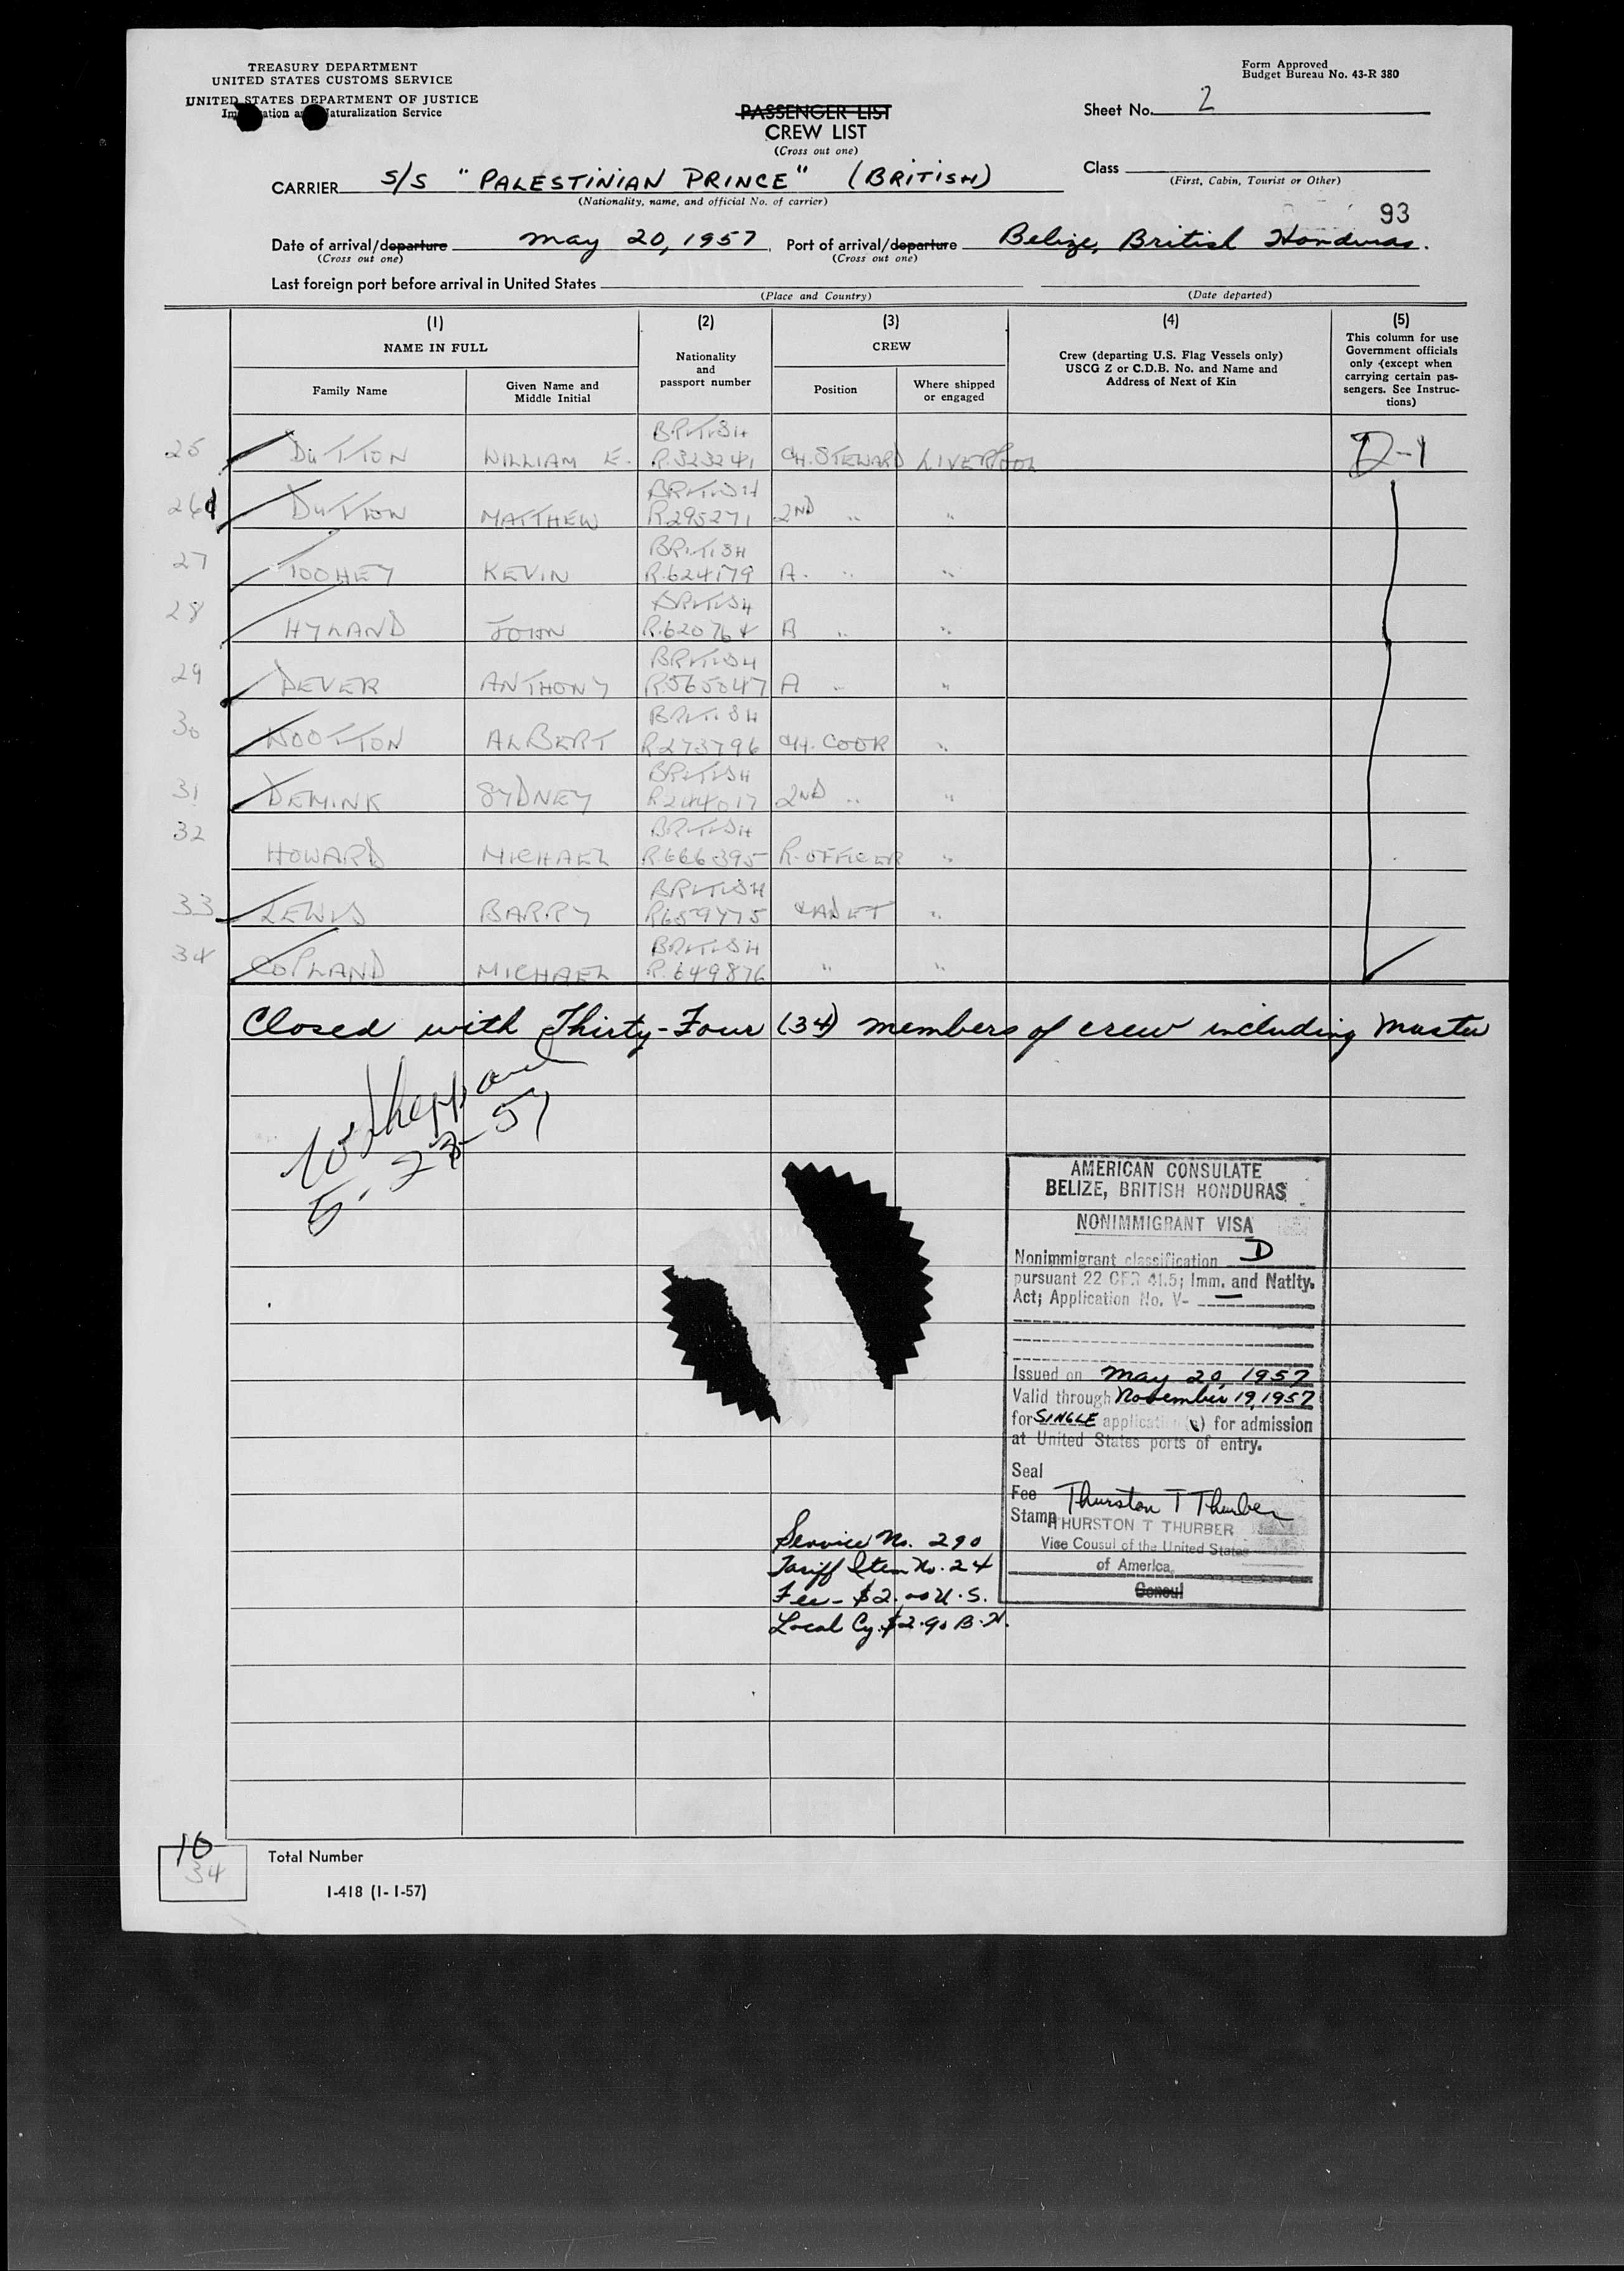 TREASURY DEPARTMENT
UNITED STATES CUSTOMS SERVICE
UNITED STATES DEPARTMENT OF JUSTICE
Naturalization Service
Form Approved
Budget Bureau No. 43-R 380
PASSENGER LIST
CREW LIST
(Cross out one)
Sheet No. 2
CARRIER S/S "PALESTINIAN PRINCE" (BRITISH)
(Nationality, name, and official No. of carrier)
Class
(First, Cabin, Tourist or Other)
93
Date of arrival/departure May 20, 1957. Port of arrival/departure Belize, British Honduras.
(Cross out one) (Cross out one)
Last foreign port before arrival in United States
(Place and Country) (Date departed)
(1) (2) (3) (4) (5)
NAME IN FULL
Family Name
Given Name and
Middle Initial
Nationality
and
passport number
CREW
Position
Where shipped
or engaged
Crew (departing U.S. Flag Vessels only)
USCG Z or C.D.B. No. and Name and
Address of Next of Kin
This column for use
Government officials
only (except when
carrying certain pas-
sengers. See Instruc-
tions)
25 DUTTON WILLIAM E. BRITISH R.323241 CH. STEWARD LIVERPOOL D-1
26 DUTTON MATTHEW BRITISH R295271 2ND " "
27 TOOHEY KEVIN BRITISH R.624179 A. " "
28 HYLAND JOHN BRITISH R.620764 A "
29 DEVER ANTHONY BRITISH R.565047 A " "
30 WOOTTON ALBERT BRITISH R273796 CH. COOK "
31 DEMINK SYDNEY BRITISH R244017 2ND " "
32 HOWARD MICHAEL BRITISH R.666395 R. OFFICER "
33 LEWIS BARRY BRITISH R659475 CADET "
34 COPLAND MICHAEL BRITISH R.649876 " "
Closed with Thirty-Four (34) members of crew including Master
Sheppard
5-23-57
AMERICAN CONSULATE
BELIZE, BRITISH HONDURAS
NONIMMIGRANT VISA
Nonimmigrant classification D
pursuant 22 CFR 41.5; Imm. and Natlty.
Act; Application No. V- —
Issued on May 20, 1957
Valid through November 19, 1957
for SINGLE application(s) for admission
at United States ports of entry.
Seal
Fee
Stamp
Thurston T Thurber
THURSTON T THURBER
Vice Cousul of the United States
of America,
Consul
Service No. 290
Tariff Item No. 24
Fee - $2.00 U.S.
Local Cy. $2.90 B.H.
10
34
Total Number
I-418 (1-1-57)